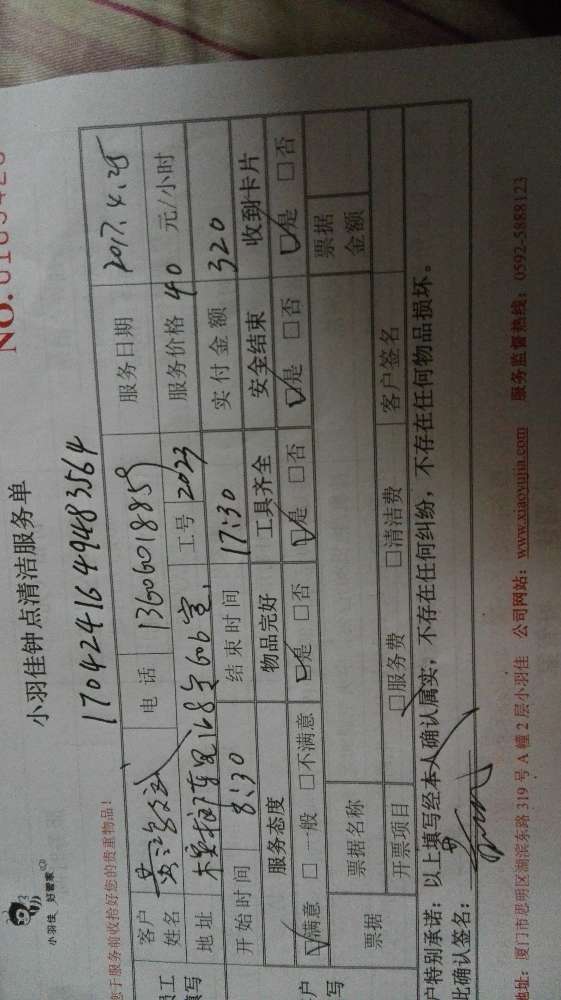 小羽佳 好管家
小羽佳钟点清洁服务单
您于服务前收拾好您的贵重物品!
17042416494483564
客户姓名 电话 13606018859 服务日期 2017.4.25
地址 168号606室. 工号 2023 服务价格 40 元/小时
开始时间 8:30 结束时间 17:30 实付金额 320
服务态度 物品完好 工具齐全 安全结束 收到卡片
☑满意 □一般 □不满意 ☑是 □否 ☑是 □否 ☑是 □否 ☑是 □否
票据 票据名称 票据金额
开票项目 □服务费 □清洁费 客户签名
户特别承诺:以上填写经本人确认属实,不存在任何纠纷,不存在任何物品损坏。
此确认签名:
地址:厦门市思明区湖滨东路 319 号 A 幢 2 层小羽佳 公司网站:www.xiaoyujia.com 服务监督热线:0592-5888123